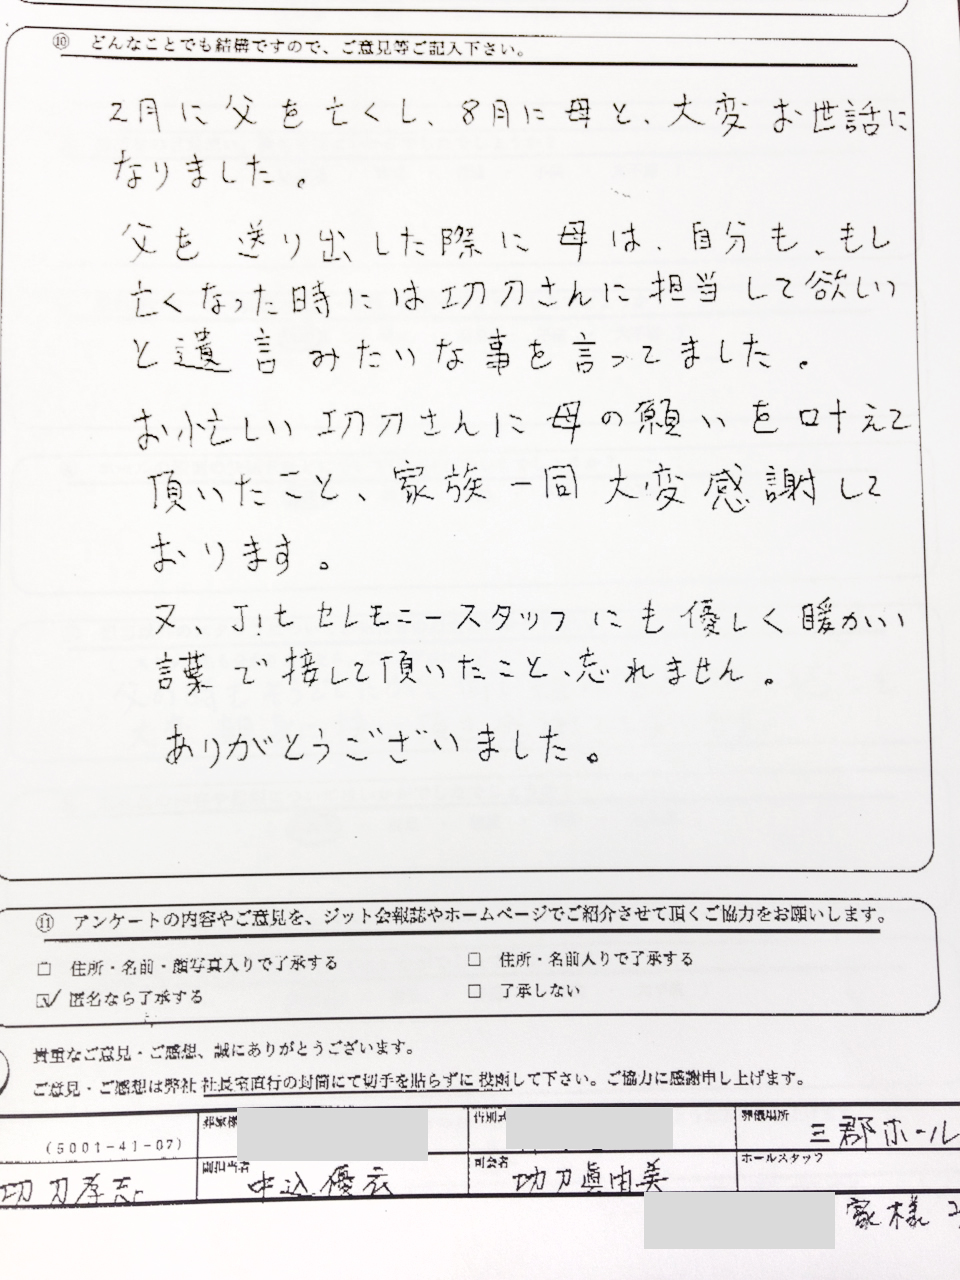 ⑩ どんなことでも結構ですので、ご意見等ご記入下さい。
2月に父を亡くし、8月に母と、大変お世話に
なりました。
父を送り出した際に母は、自分も、もし
亡くなった時には功刀さんに担当して欲しい
と遺言みたいな事を言ってました。
お忙しい功刀さんに母の願いを叶えて
頂いたこと、家族一同大変感謝して
おります。
又、Jitセレモニースタッフにも優しく暖かい
言葉で接して頂いたこと、忘れません。
ありがとうございました。
⑪ アンケートの内容やご意見を、ジット会報誌やホームページでご紹介させて頂くご協力をお願いします。
□ 住所・名前・顔写真入りで了承する □ 住所・名前入りで了承する
☑ 匿名なら了承する □ 了承しない
貴重なご意見・ご感想、誠にありがとうございます。
ご意見・ご感想は弊社 社長室直行の封筒にて切手を貼らずに投函して下さい。ご協力に感謝申し上げます。
葬家様 告別式 葬儀場所
(5001-41-07) 三郡ホール
副担当者 司会者 ホールスタッフ
功刀孝 中込優衣 功刀眞由美
家様